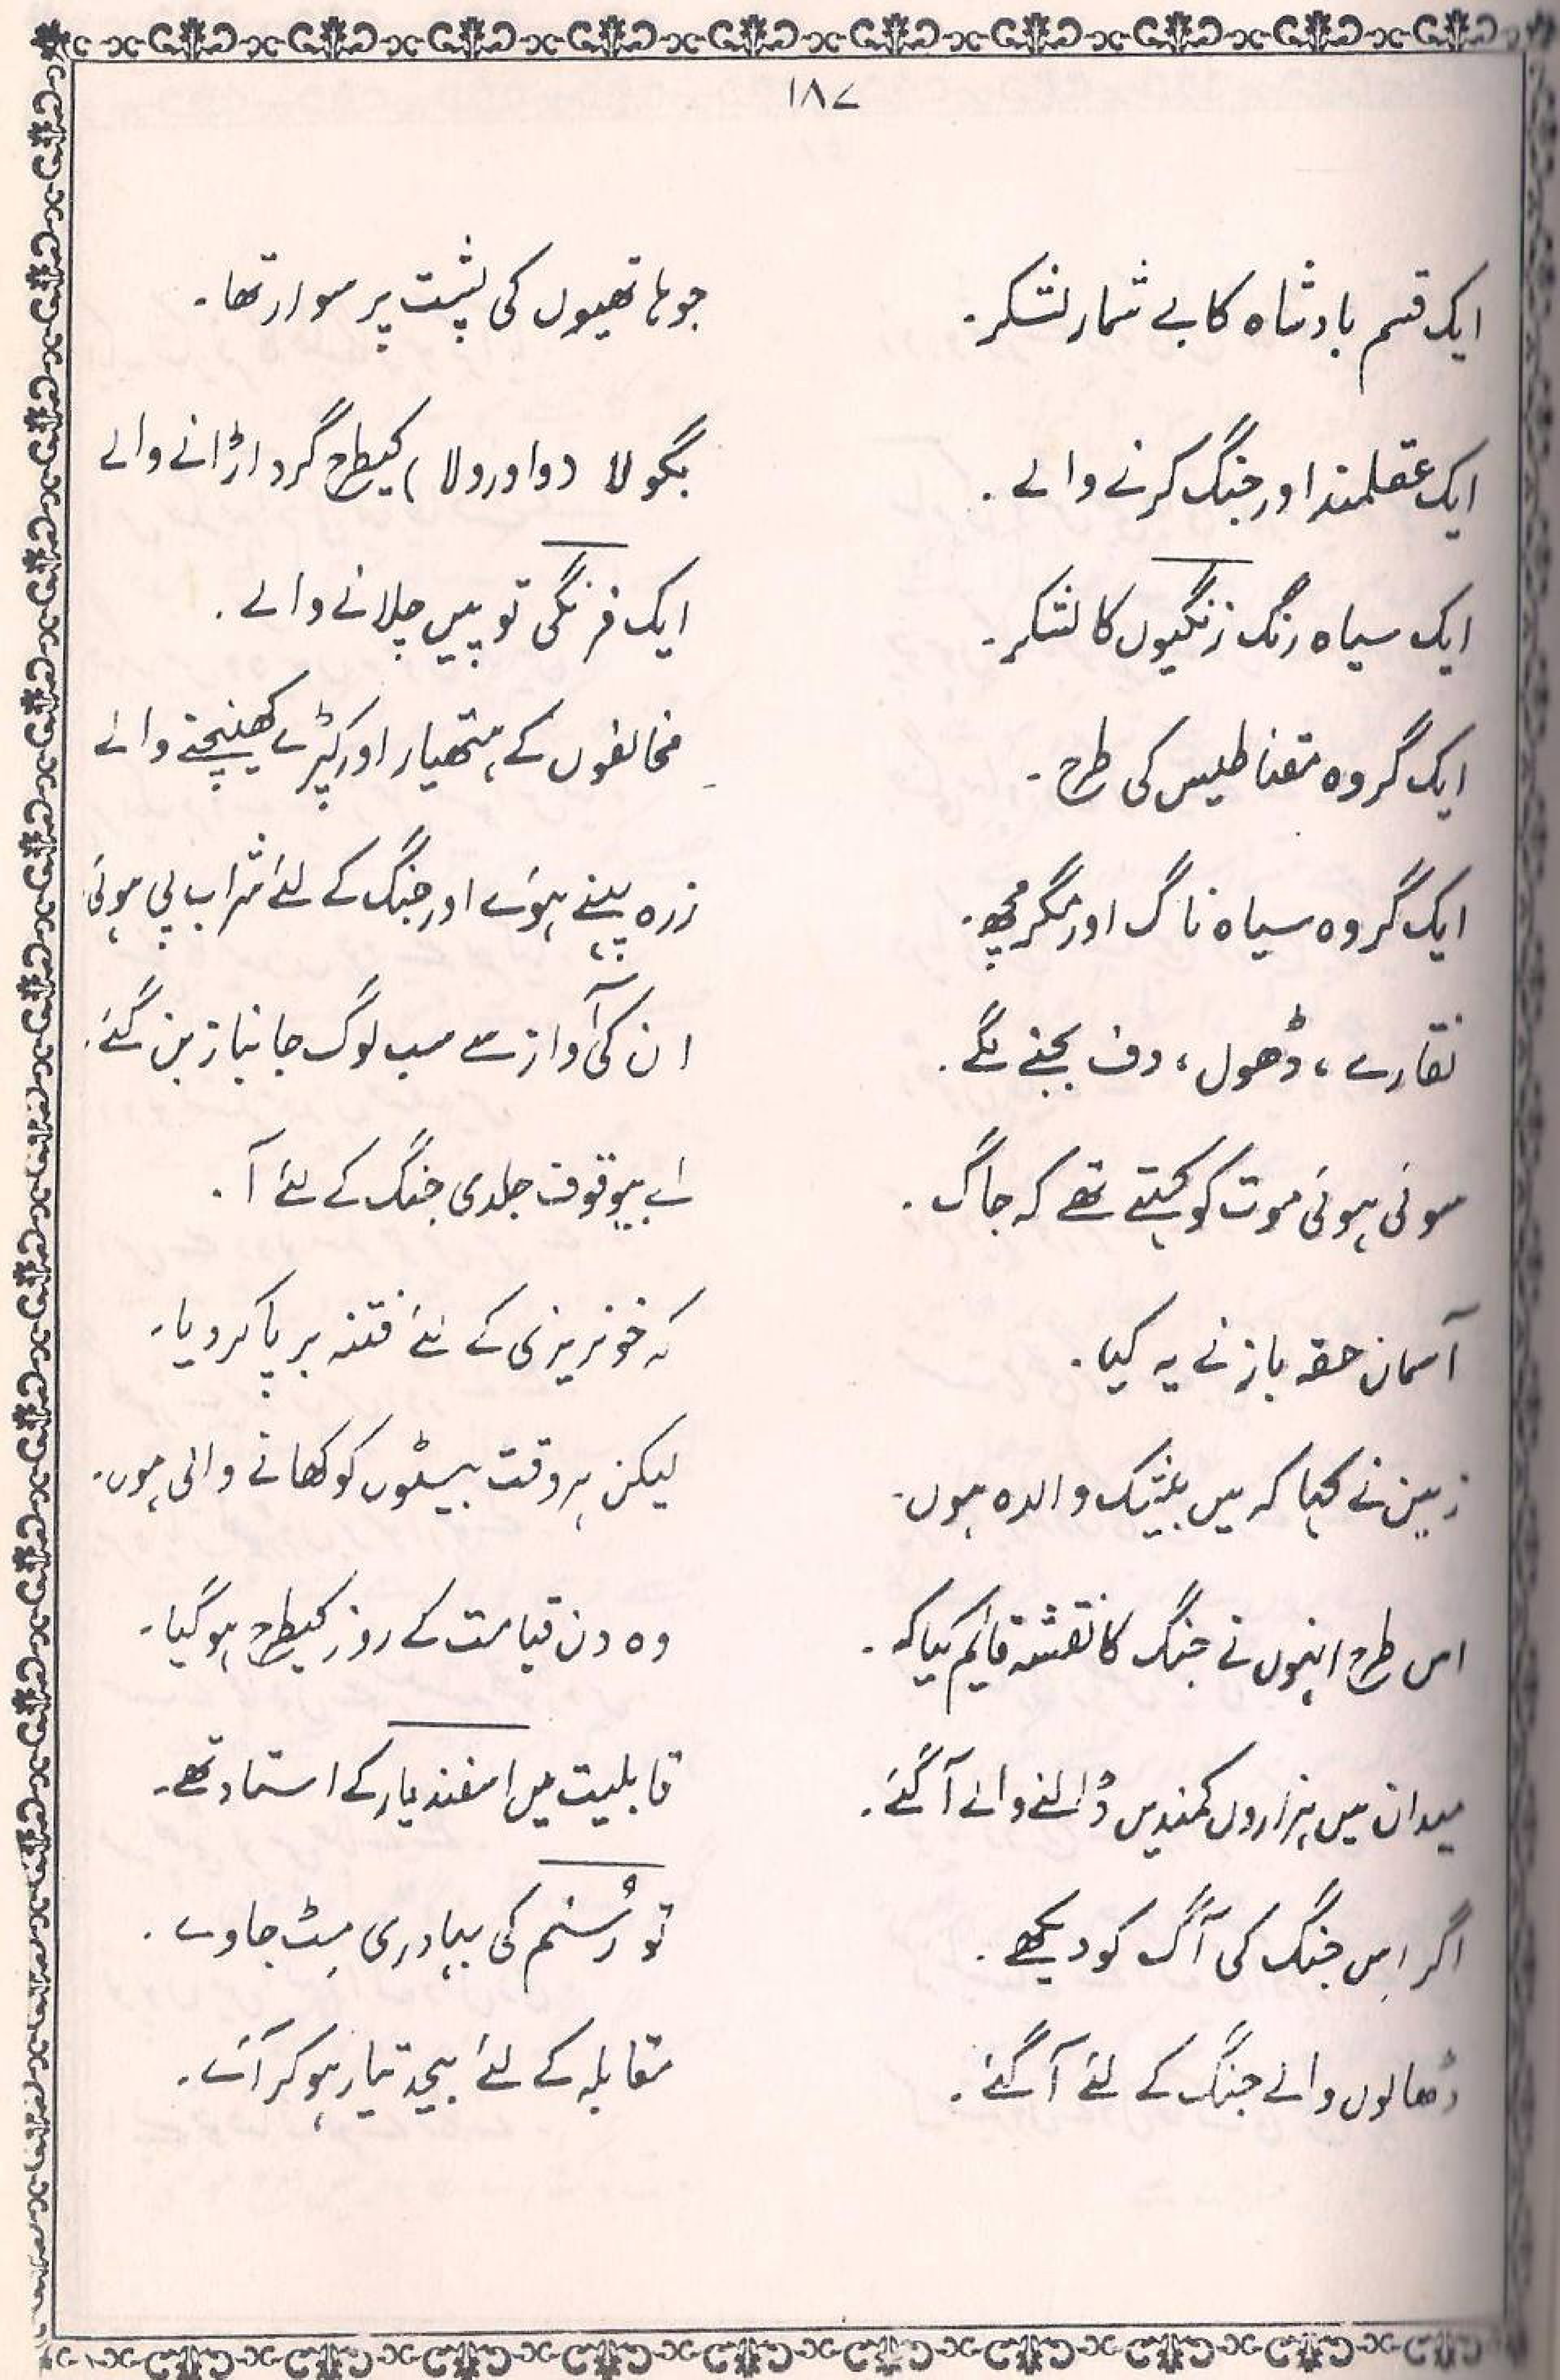 ۱۸۷
ایک قسم بادشاہ کا بے شمار لشکر۔ جو ہاتھیوں کی پشت پر سوار تھا۔
ایک عقلمند اور جنگ کرنے والے۔ بگولا (واورولا) کیطرح گرد اڑانے والے
ایک سیاہ رنگ زنگیوں کا لشکر۔ ایک فرنگی توپیں چلانے والے۔
ایک گروہ مقناطیس کی طرح۔ مخالفوں کے ہتھیار اور کپڑے کھینچنے والے
ایک گروہ سیاہ ناگ اور مگرمچھ۔ زرہ پہنے ہوئے اور جنگ کے لئے شراب پی ہوئی
نقارے، ڈھول، دف بجنے لگے۔ ان کی آواز سے سب لوگ جانباز بن گئے۔
سوئی ہوئی موت کو کہتے تھے کہ جاگ۔ اے بیوقوف جلدی جنگ کے لئے آ۔
آسمان حقہ باز نے یہ کیا۔ کہ خونریزی کے لئے فتنہ برپا کردیا۔
زمین نے کہا کہ میں بیشک والدہ ہوں۔ لیکن ہر وقت بیٹوں کو کھانے والی ہوں۔
اس طرح انہوں نے جنگ کا نقشہ قائم کیا کہ۔ وہ دن قیامت کے روز کیطرح ہوگیا۔
میدان میں ہزاروں کمندیں ڈالنے والے آگئے۔ قابلیت میں اسفندیار کے استاد تھے۔
اگر اِس جنگ کی آگ کو دیکھے۔ تو رُستم کی بہادری مِٹ جاوے۔
ڈھالوں والے جنگ کے لئے آگئے۔ مقابلہ کے لئے بیحد تیار ہوکر آئے۔